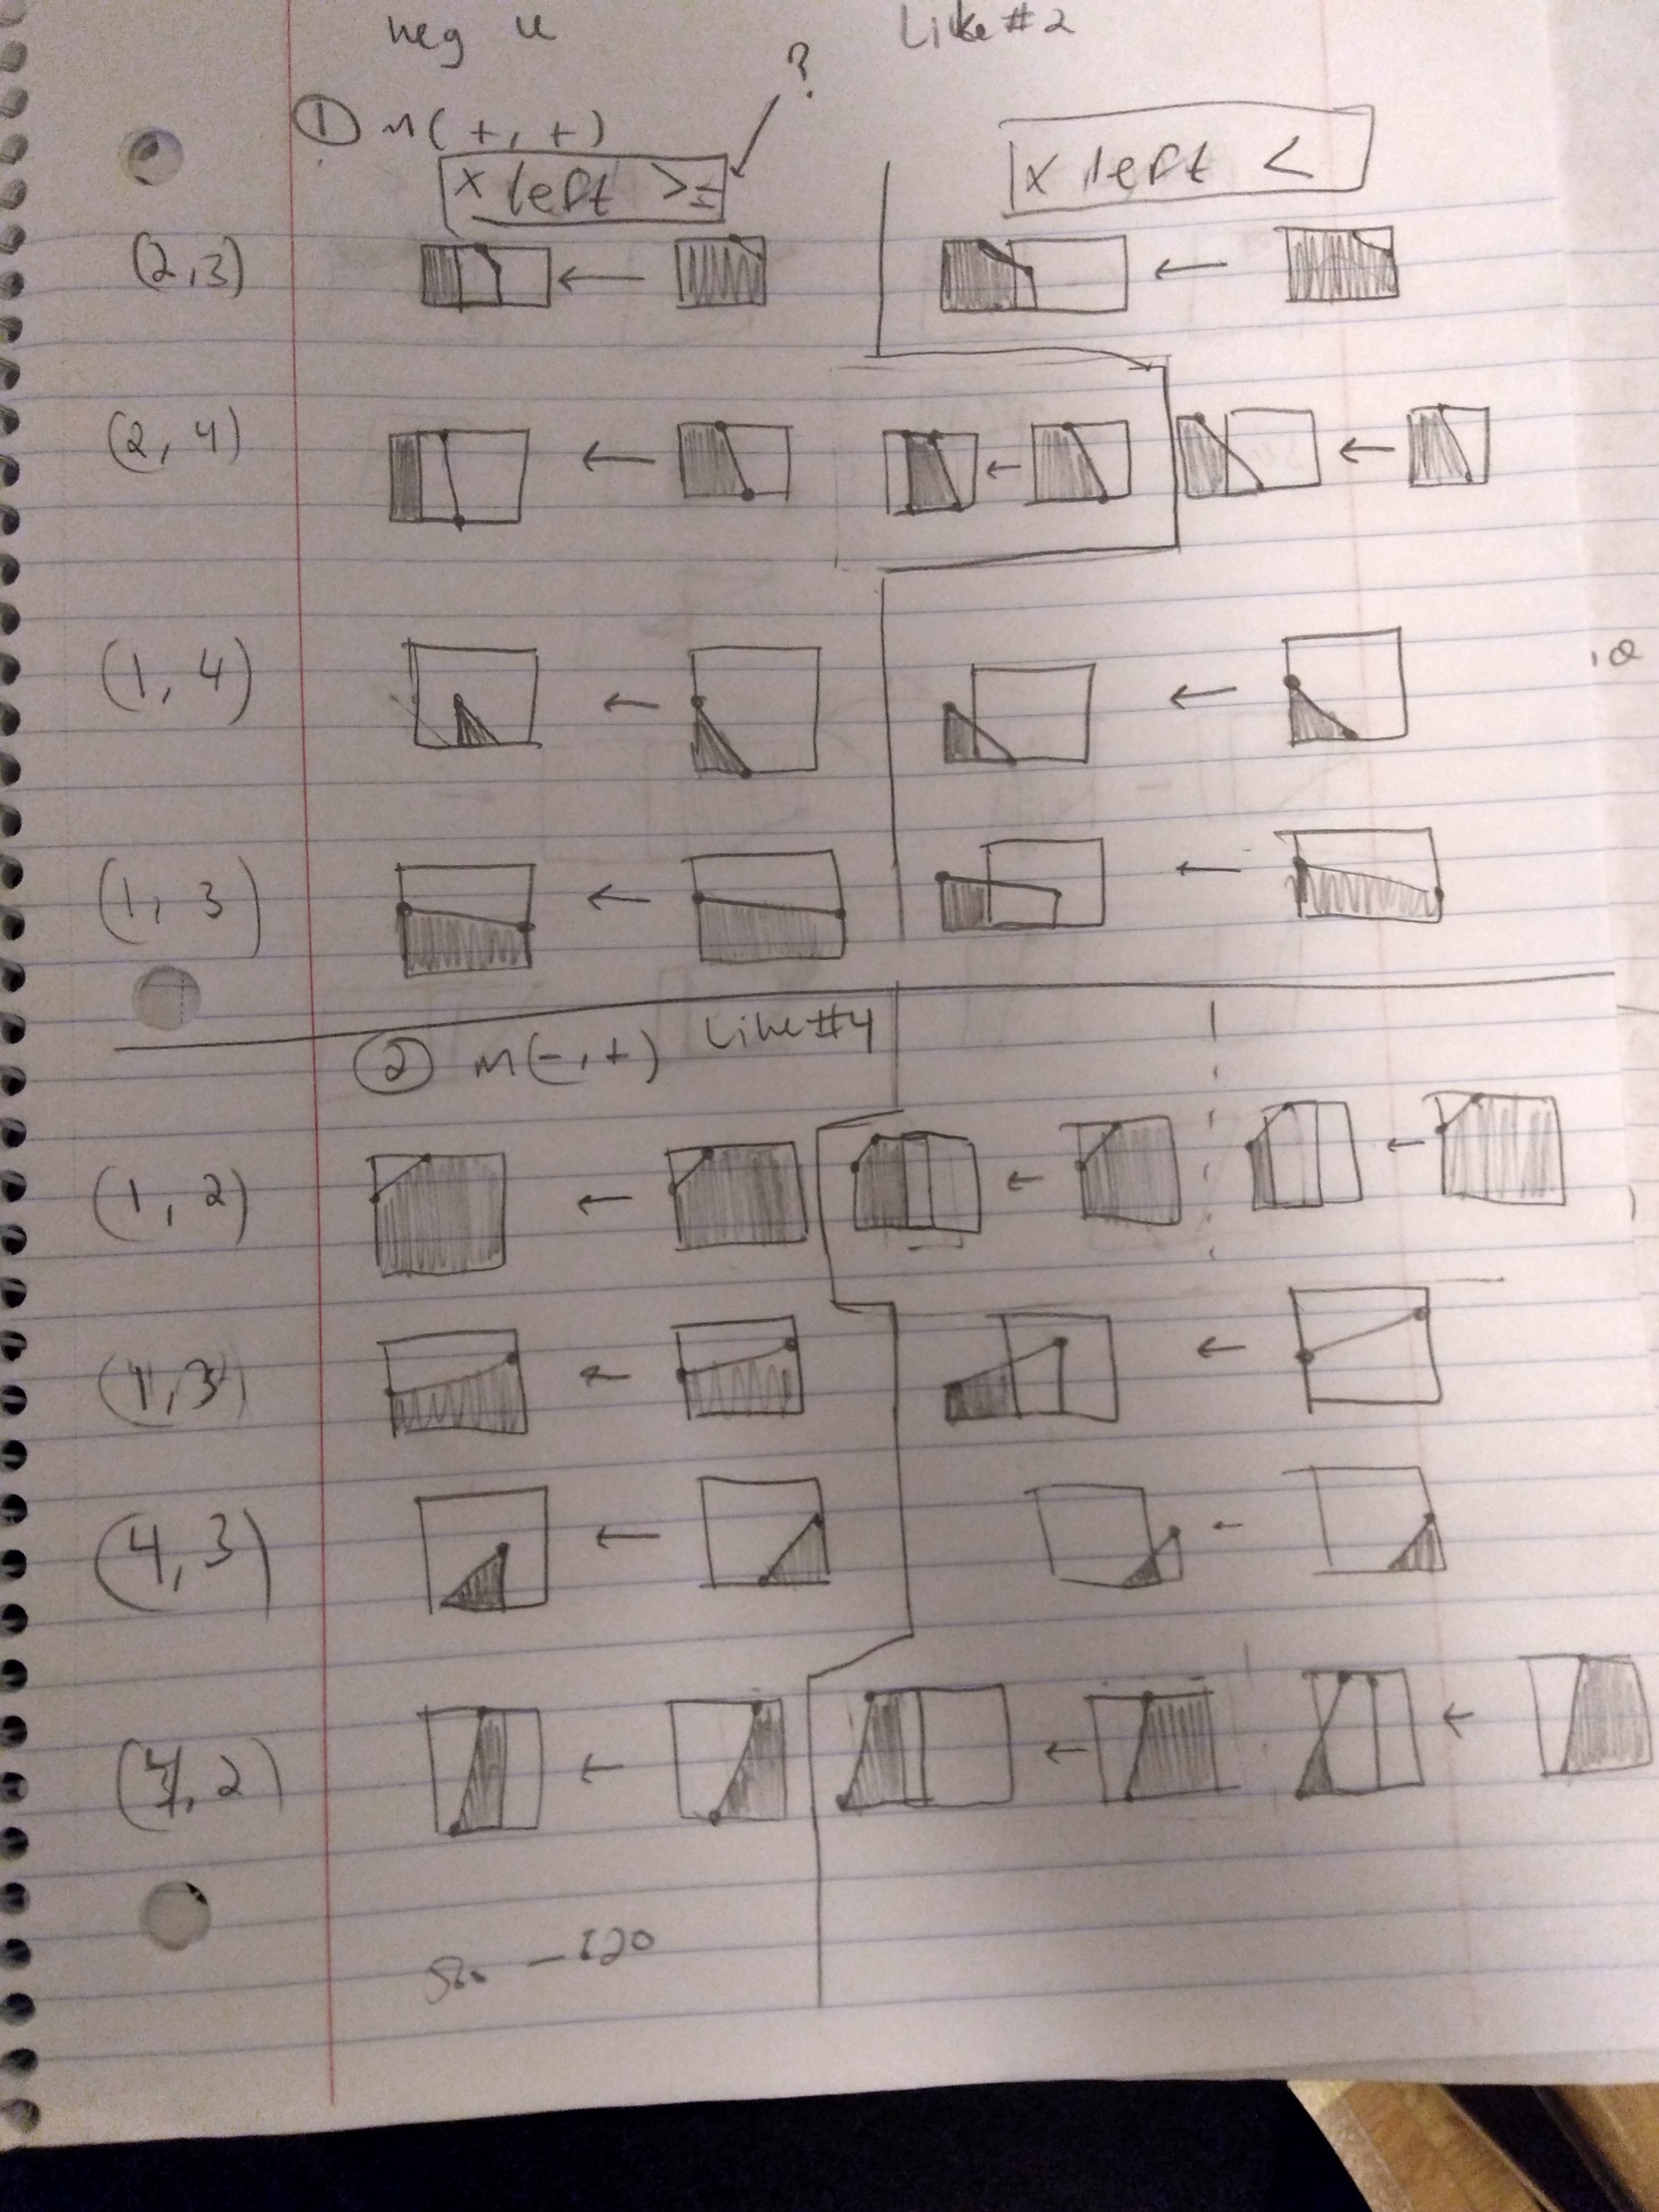 neg u Like #2
?
① m(+, +)
x left >= x left <
(2,3)
(2, 4)
(1, 4)
(1, 3)
② m(-, +) Like #4
(1, 2)
(1, 3)
(4, 3)
(4, 2)